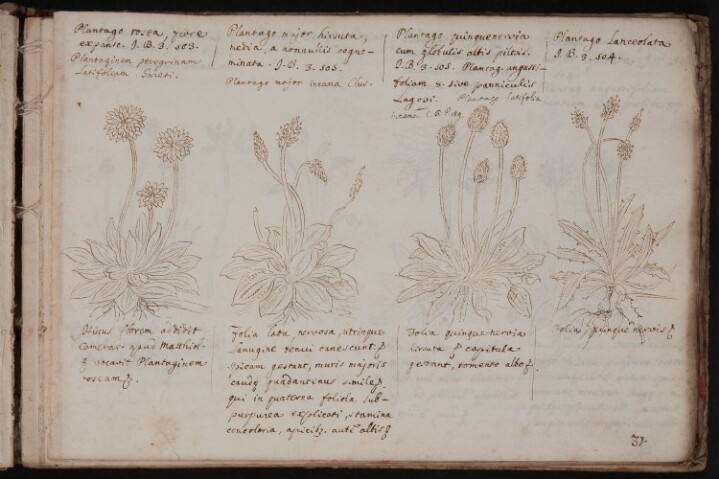 Plantago rosea, flore
expanso. I. B. 3. 503.
Plantaginem peregrinam
latifoliam.
Plantago major hirsuta,
media, a nonnullis cogno-
minata. I. B. 3. 505.
Plantago major incana Clus.
Plantago quinquenervia
cum globulis albis pilosis.
I. B. 3. 505. Plantag. angusti-
folia sive panniculis
Lagopi. Plantago latifolia
incana C. B. Pag.
Plantago Lanceolata
I. B. 3. 504.
Huius florem addidit
Camerar. apud Matthiol.
vocavit Plantaginem
roseam
Folia lata, nervosa, utrinque
lanugine tenui canescunt,
spicam gestant, muris majoris
caudæ quadantenus simile
qui in quaterna foliola sub-
purpurea explicati, stamina
concoloria, apicib. aute albis
Folia quinquenervia
hirsuta & capitula
gestant, tomento albo
Folia quinquenervis
31.